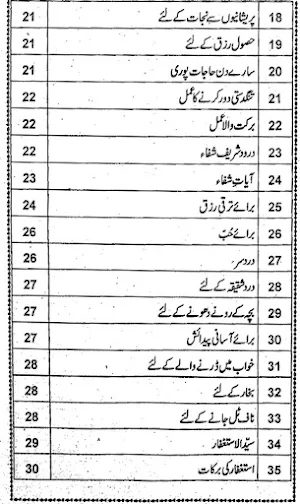 18 پریشانیوں سے نجات کے لئے 21
19 حصول رزق کے لئے 21
20 سارے دن حاجات پوری 21
21 تنگدستی دور کرنے کا عمل 22
22 برکت والا عمل 22
23 درود شریف شفاء 22
24 آیات شفاء 23
25 برائے ترقی رزق 24
26 برائے حُبّ 26
27 درد سر 26
28 درد شقیقہ کے لئے 27
29 بچہ کے رونے دھونے کے لئے 27
30 برائے آسانی پیدائش 27
31 خواب میں ڈرنے والے کے لئے 28
32 بخار کے لئے 28
33 ناف ٹل جانے کے لئے 28
34 سیّد الاستغفار 29
35 استغفار کی برکات 30